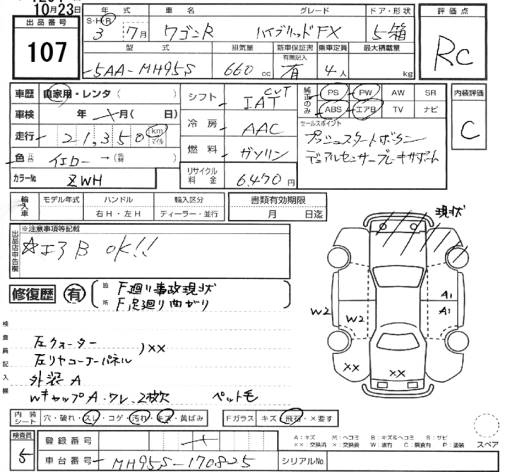 10月23日
出品番号 107
年式 S・H・R 3年 7月
車名 ワゴンR
グレード ハイブリッドFX
ドア・形状 5 箱
評価点 RC
型式 5AA-MH95S
排気量 660 cc
新車保証書 有
乗車定員 4人
最大積載量 kg
車歴 自家用・レンタ( )
車検 年 月( 日)
走行 21,350 km マイル
色 イエロー → (替色)
カラーNo ZWH
シフト IAT CVT
冷房 AAC
燃料 ガソリン
リサイクル料金 6,470円
純正のみ
PS PW AW SR
ABS エアB TV ナビ
セールスポイント
プッシュスタートボタン
デュアルセンサーブレーキサポート
内装評価 C
輸入車 モデル年式 ハンドル 輸入区分
右H・左H ディーラー・並行
書類有効期限
月 日迄
出品店申告欄
※注意事項等記載
☆エアB OK!!
修復歴 有
箇所
F廻り事故現状
F足廻り曲がり
検査員記入欄
左クォーター
左リヤコーナーパネル
)××
外装A
WキャップA・ワレ、2枚欠 ペット毛
現状
W2 W2
A1
A1
×× ××
内装シート 穴・破れ・スレ・コゲ・汚れ・キズ・黄ばみ
Fガラス キズ・飛石・×要す
検査員 5
登録番号
車台番号 MH95S-170825
シリアルNo
A:キズ M:ヘコミ B:キズ&ヘコミ S:サビ
スペア